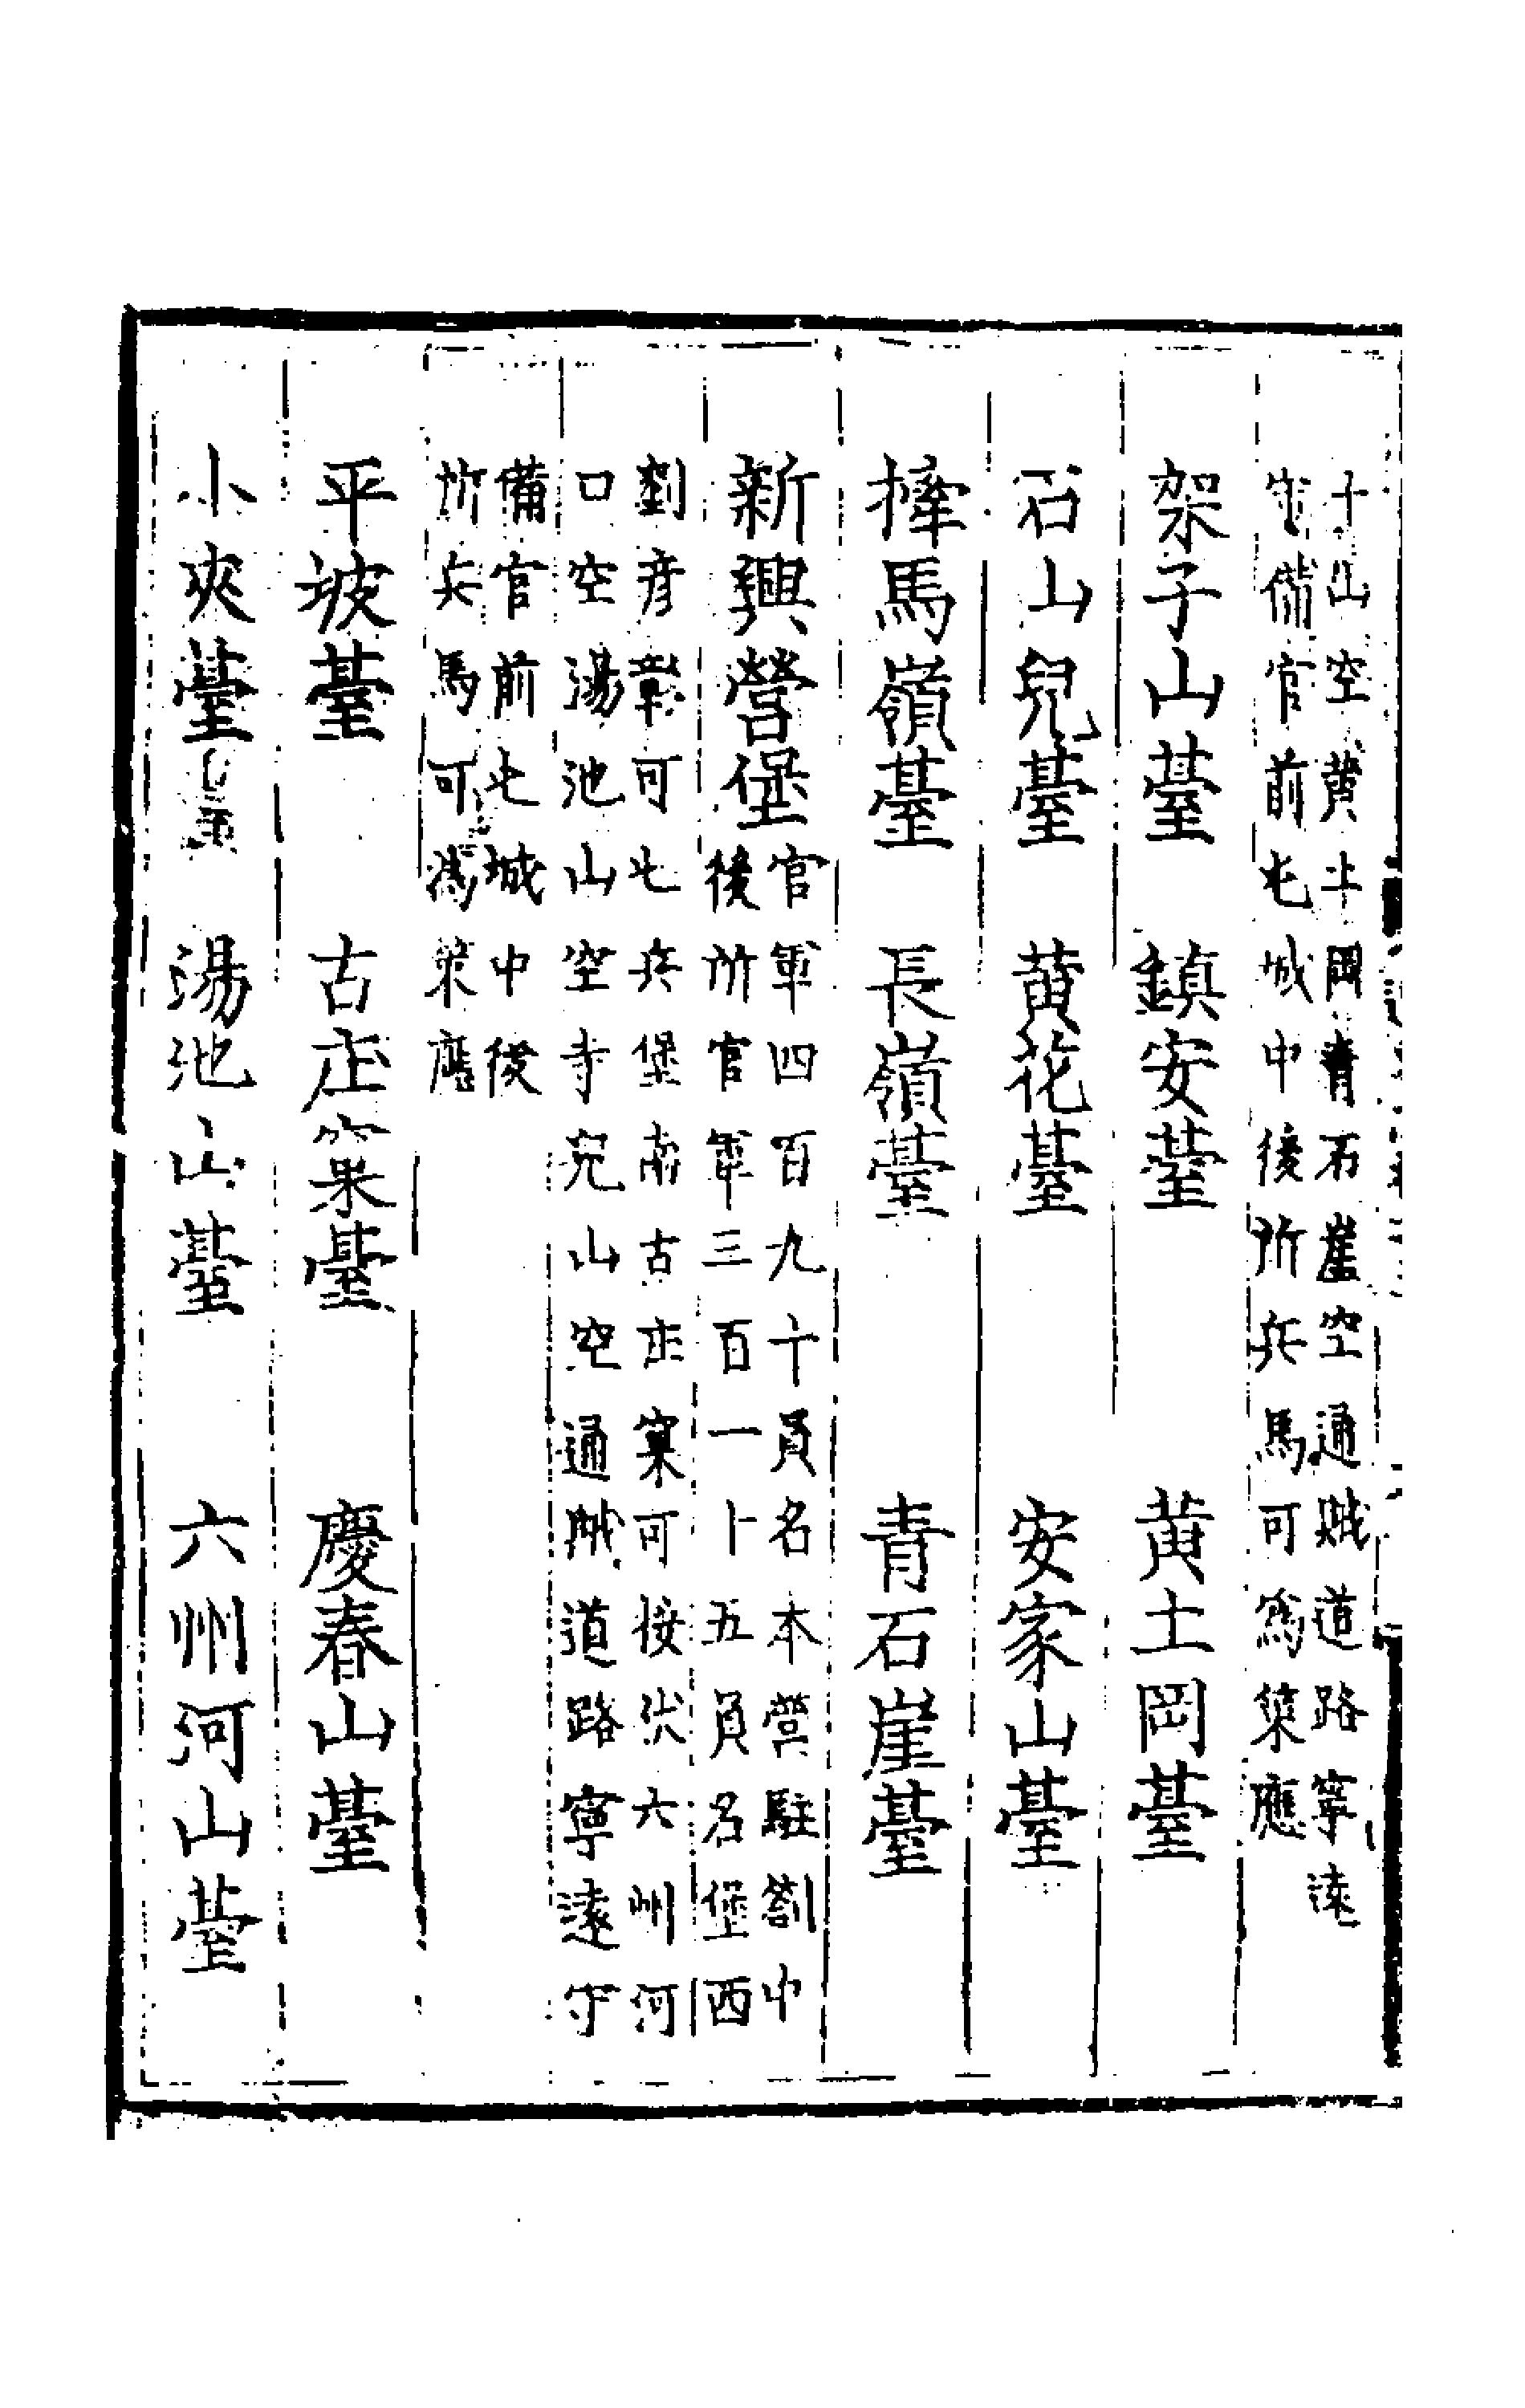 十山空黄土岡青石崖空通賊道路寧遠
守備官前屯城中後所兵馬可爲策應
架子山臺 鎮安臺 黄土岡臺
石山兒臺 黄花臺 安家山臺
摔馬嶺臺 長嶺臺 青石崖臺
新興營堡 官軍四百九十員名本營駐劄中
後所官軍三百一十五員名堡西
劉彦彰可屯兵堡南古庄窠可按伏六州河
口空湯池山空寺兒山空通賊道路寧遠守
備官前屯城中後
所兵馬可爲策應
平坡臺 古庄窠臺 慶春山臺
小夾臺 湯池山臺 六州河山臺